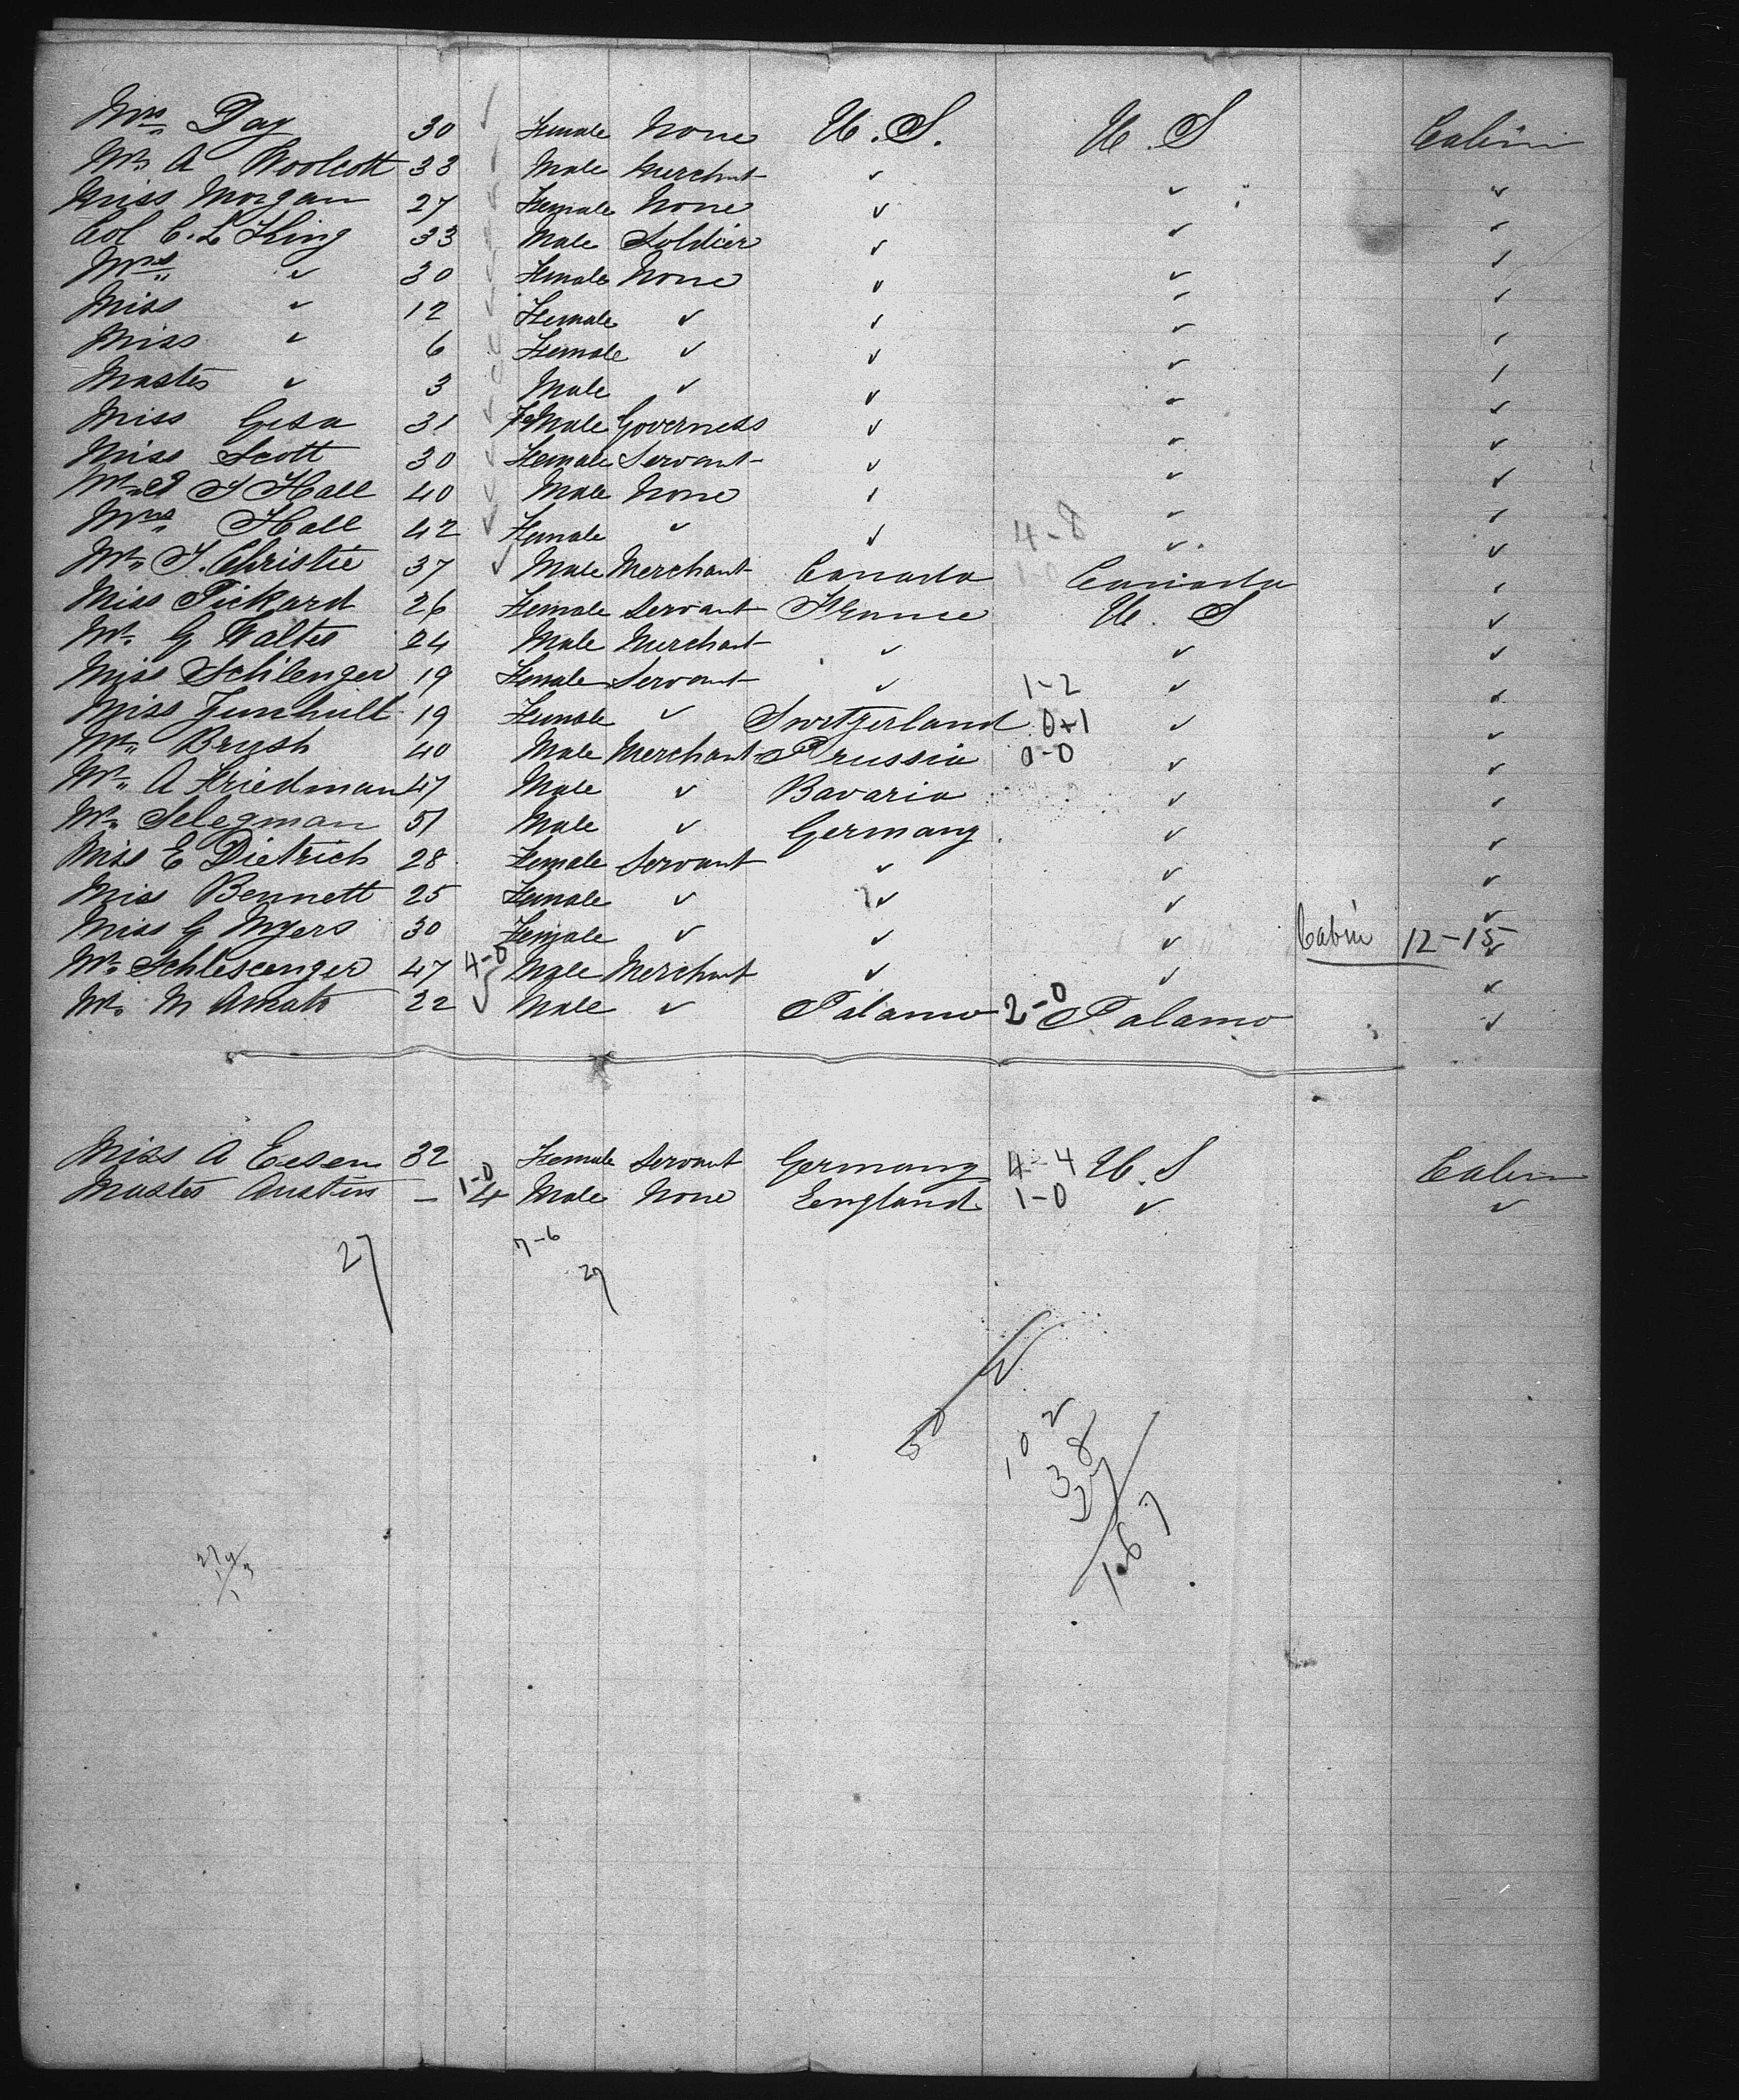 Mrs Day 30 ✓ Female None U.S. U.S Cabin
Mr. A Woolcott 33 ✓ Male Merchant ✓ ✓ ✓
Miss Morgan 27 ✓ Female None ✓ ✓ ✓
Col C. L King 33 ✓ Male Soldier ✓ ✓ ✓
Mrs ✓ 30 ✓ Female None ✓ ✓ ✓
Miss ✓ 12 ✓ Female ✓ ✓ ✓ ✓
Miss ✓ 6 ✓ Female ✓ ✓ ✓ ✓
Master ✓ 3 ✓ Male ✓ ✓ ✓ ✓
Miss Gesa 31 ✓ FeMale Governess ✓ ✓ ✓
Miss Scott 30 ✓ Female Servant ✓ ✓ ✓
Mr. J Hall 40 ✓ Male None ✓ ✓ ✓
Mrs Hall 42 ✓ Female ✓ ✓ 4-8 ✓ ✓
Mr. J. Christie 37 ✓ Male Merchant Canada 1-0 Canada ✓
Miss Pickard 26 Female Servant France U.S ✓
Mr. G Walter 24 Male Merchant ✓ ✓ ✓
Miss Schlenger 19 Female Servant ✓ 1-2 ✓ ✓
Miss Zunhult 19 Female ✓ Swrtzerland 0+1 ✓ ✓
Mr. Brush 40 Male Merchant Prussia 0-0 ✓ ✓
Mr. A Friedman 47 Male ✓ Bavaria ✓ ✓
Mr. Selegman 51 Male ✓ Germany ✓ ✓
Miss E Dietrich 28 Female Servant ✓ ✓ ✓
Miss Bennett 25 Female ✓ ✓ ✓ ✓
Miss G Myers 30 Female ✓ ✓ ✓ Cabin 12-15 ✓
Mr. Schlesenger 47 4-0 Male Merchant ✓ ✓ ✓
Mr. M Amato 22 ✓ Male ✓ Palamo 2-0 Palamo ✓
Miss A Eesen 32 Female Servant Germany 4-4 U.S Cabin
Master Austin - 1-0 4 Male None England 1-0 ✓ ✓
27 7-6
27
102
38
27
167